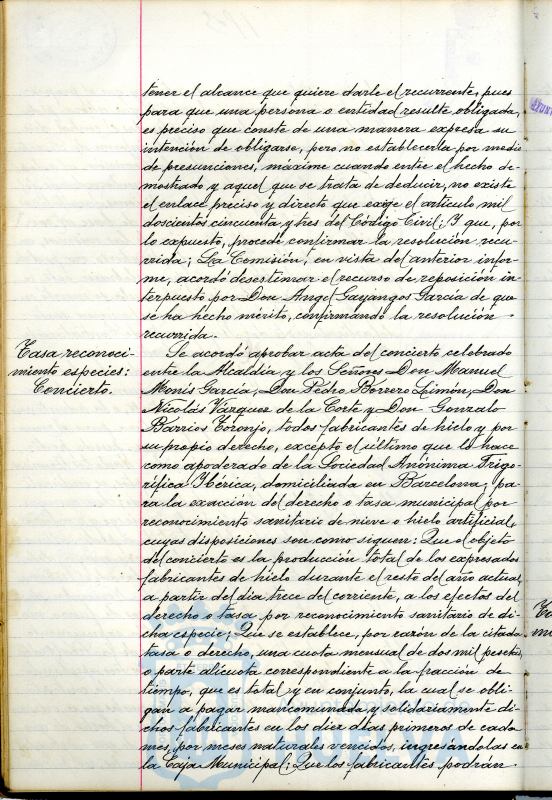 tener el alcance que quiere darle el recurrente, pues
para que una persona o entidad resulte obligada,
es preciso que conste de una manera expresa su
intención de obligarse, pero no establecerla por medio
de presunciones, máxime cuando entre el hecho de-
mostrado y aquel que se trata de deducir, no existe
el enlace preciso y directo que exige el artículo mil
doscientos cincuenta y tres del Código Civil; Y que, por
lo expuesto, procede confirmar la resolución recu-
rrida; La Comisión, en vista del anterior infor-
me, acordó desestimar el recurso de reposición in-
terpuesto por Don Angel Gayangos García de que
se ha hecho mérito, confirmando la resolución
recurrida.
Tasa reconoci-
miento especies:
Concierto.
Se acordó aprobar acta del concierto celebrado
entre la Alcaldía y los Señores Don Manuel
Monís García, Don Pedro Borrero Limón, Don
Nicolás Vázquez de la Corte y Don Gonzalo
Barrios Toronjo, todos fabricantes de hielo y por
su propio derecho, excepto el último que lo hace
como apoderado de la Sociedad Anónima Frigo-
rífica Ibérica, domiciliada en Barcelona, pa-
ra la exacción del derecho o tasa municipal por
reconocimiento sanitario de nieve o hielo artificial,
cuyas disposiciones son como siguen: Que el objeto
del concierto es la producción total de los expresados
fabricantes de hielo durante el resto del año actual,
a partir del dia trece del corriente, a los efectos del
derecho o tasa por reconocimiento sanitario de di-
cha especie; Que se establece, por razón de la citada
tasa o derecho, una cuota mensual de dos mil pesetas,
o parte alicuota correspondiente a la fracción de
tiempo, que es total y en conjunto, la cual se obli-
gan a pagar mancomunada y solidariamente di-
chos fabricantes en los diez dias primeros de cada
mes, por meses naturales vencidos, ingresándolas en
la Caja Municipal; Que los fabricantes podrán